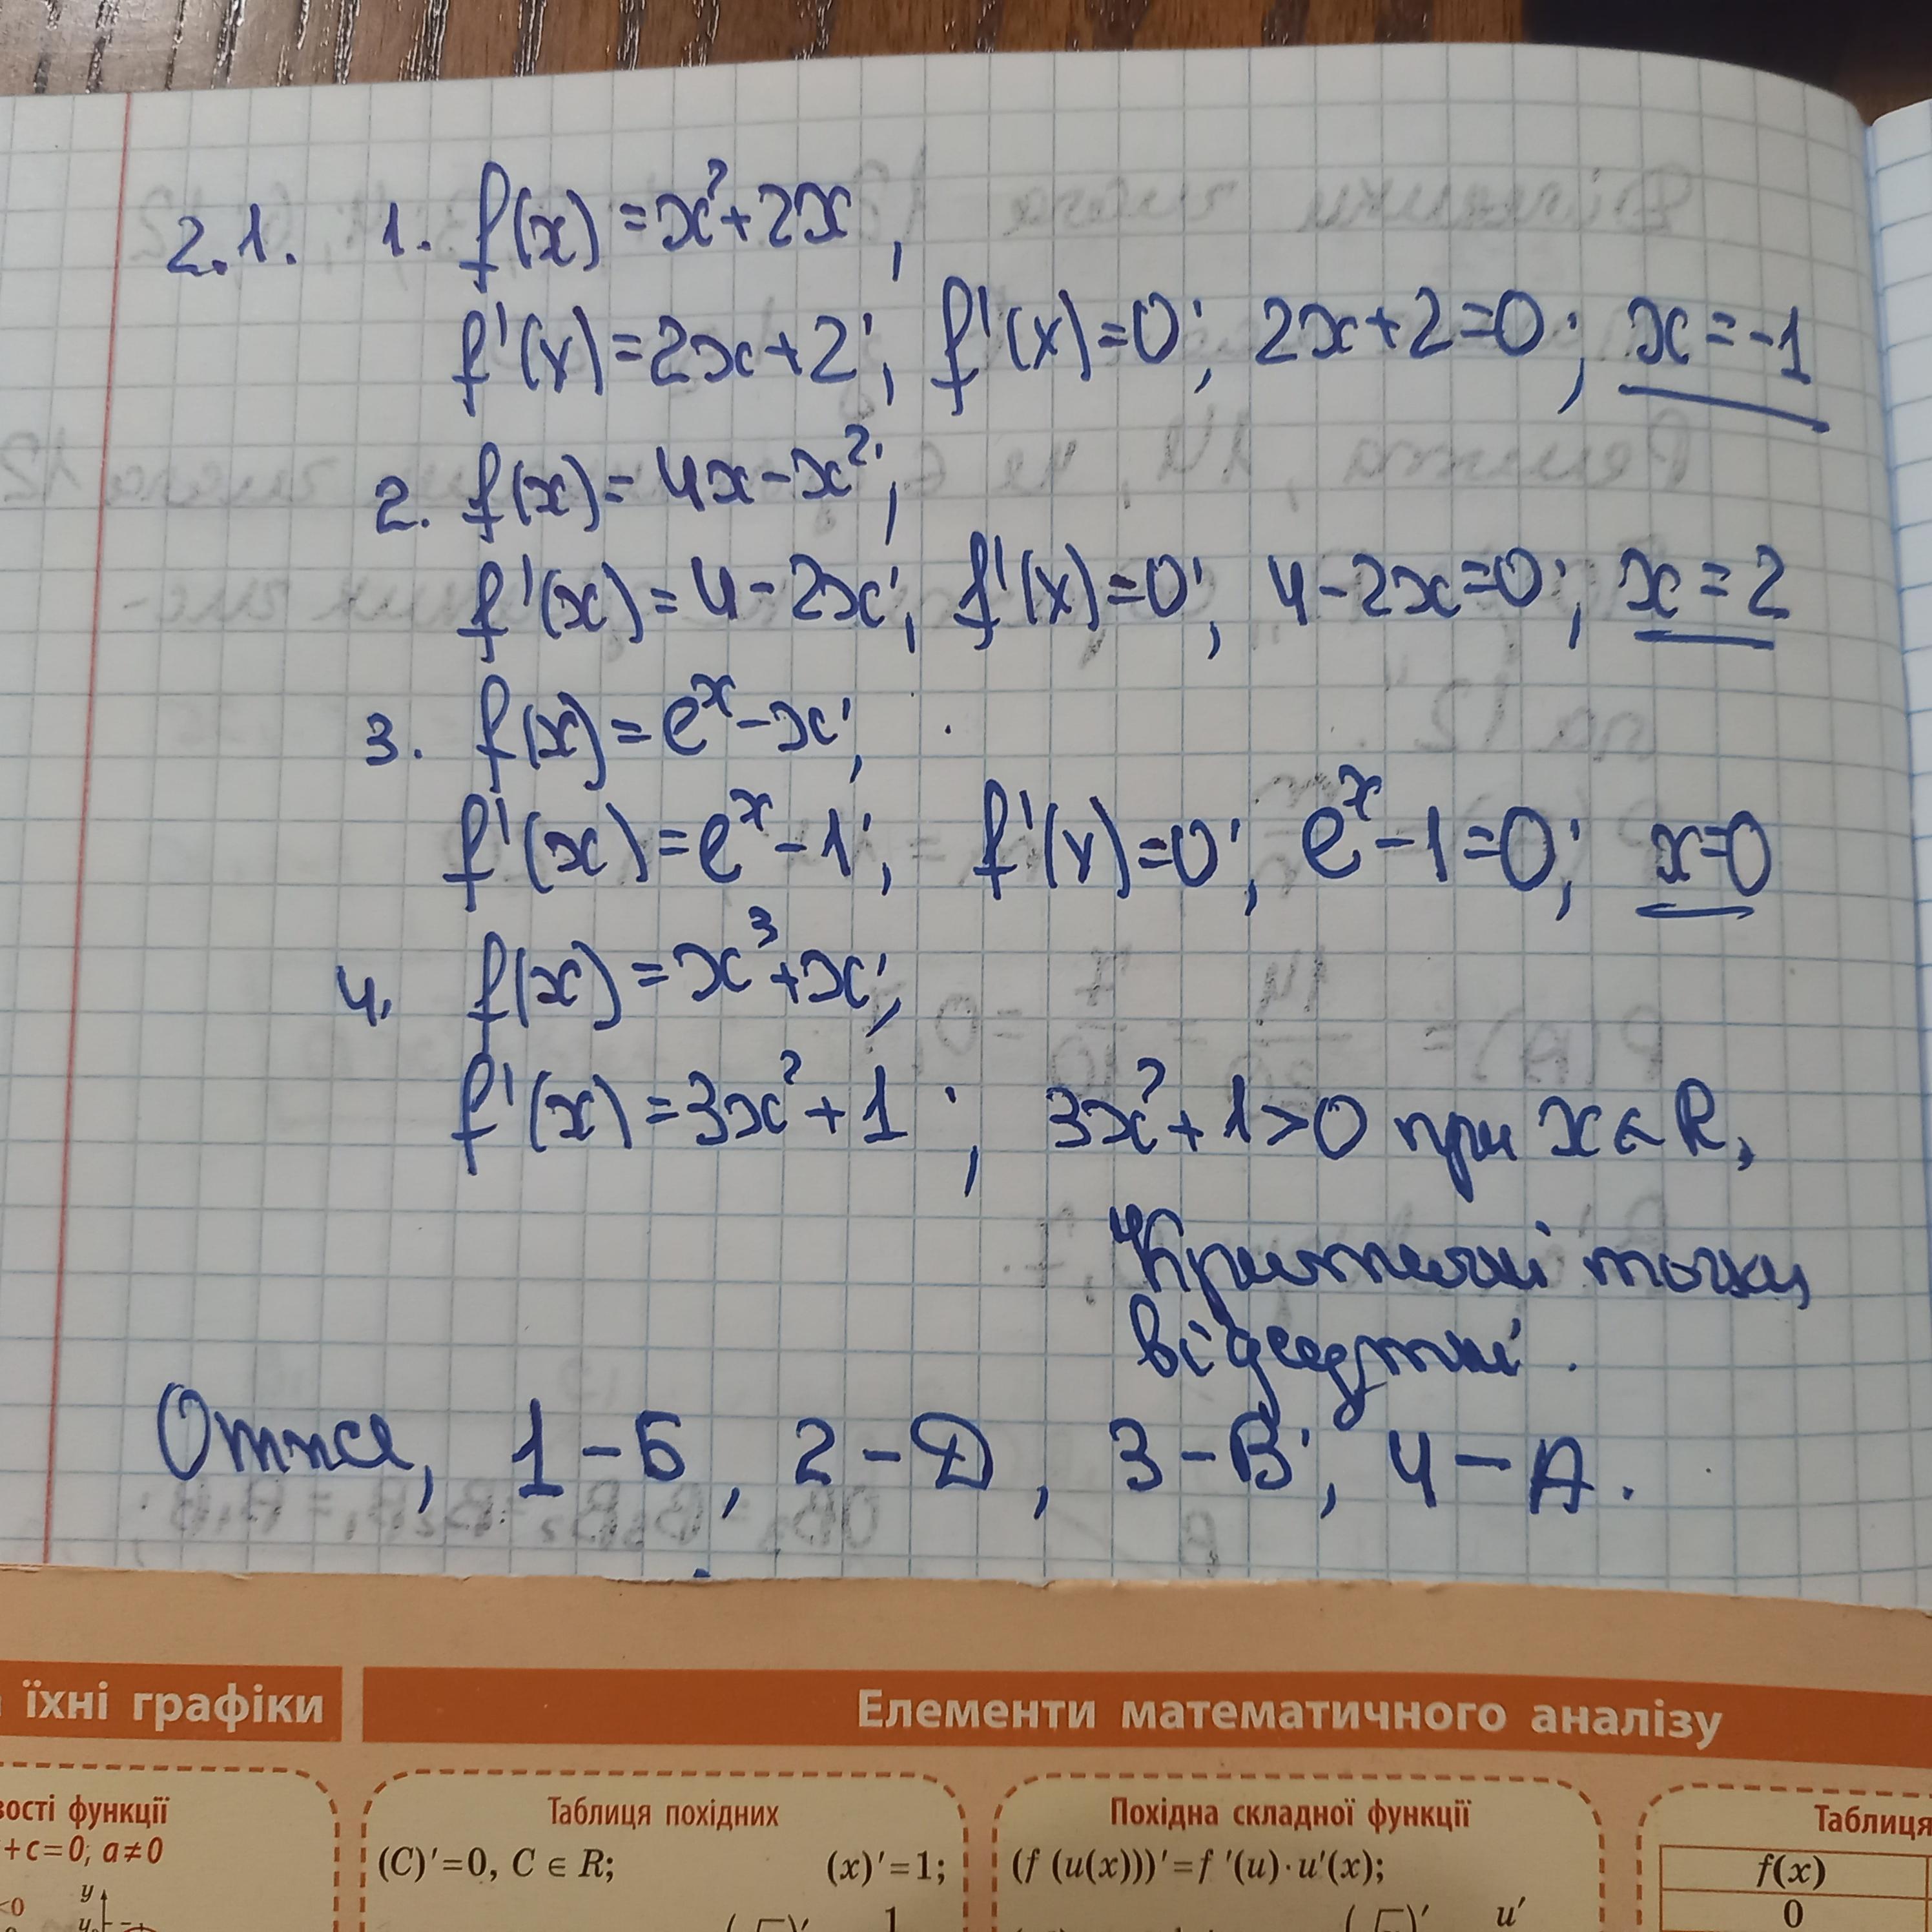 2.1. 1. f(x) = x² + 2x,
f'(x) = 2x + 2; f'(x) = 0; 2x + 2 = 0; x = -1
2. f(x) = 4x - x²;
f'(x) = 4 - 2x; f'(x) = 0; 4 - 2x = 0; x = 2
3. f(x) = eˣ - x;
f'(x) = eˣ - 1; f'(x) = 0; eˣ - 1 = 0; x = 0
4. f(x) = x³ + x;
f'(x) = 3x² + 1; 3x² + 1 > 0 при x ∈ R,
Критичні точки
відсутні.
Отже, 1 - Б, 2 - Д, 3 - В; 4 - А.
їхні графіки
Елементи математичного аналізу
вості функції
+ c = 0; a ≠ 0
<0
y
Таблиця похідних
(C)' = 0, C ∈ R; (x)' = 1;
1
Похідна складної функції
(f (u(x)))' = f '(u) · u'(x);
u'
Таблиця
f(x)
0